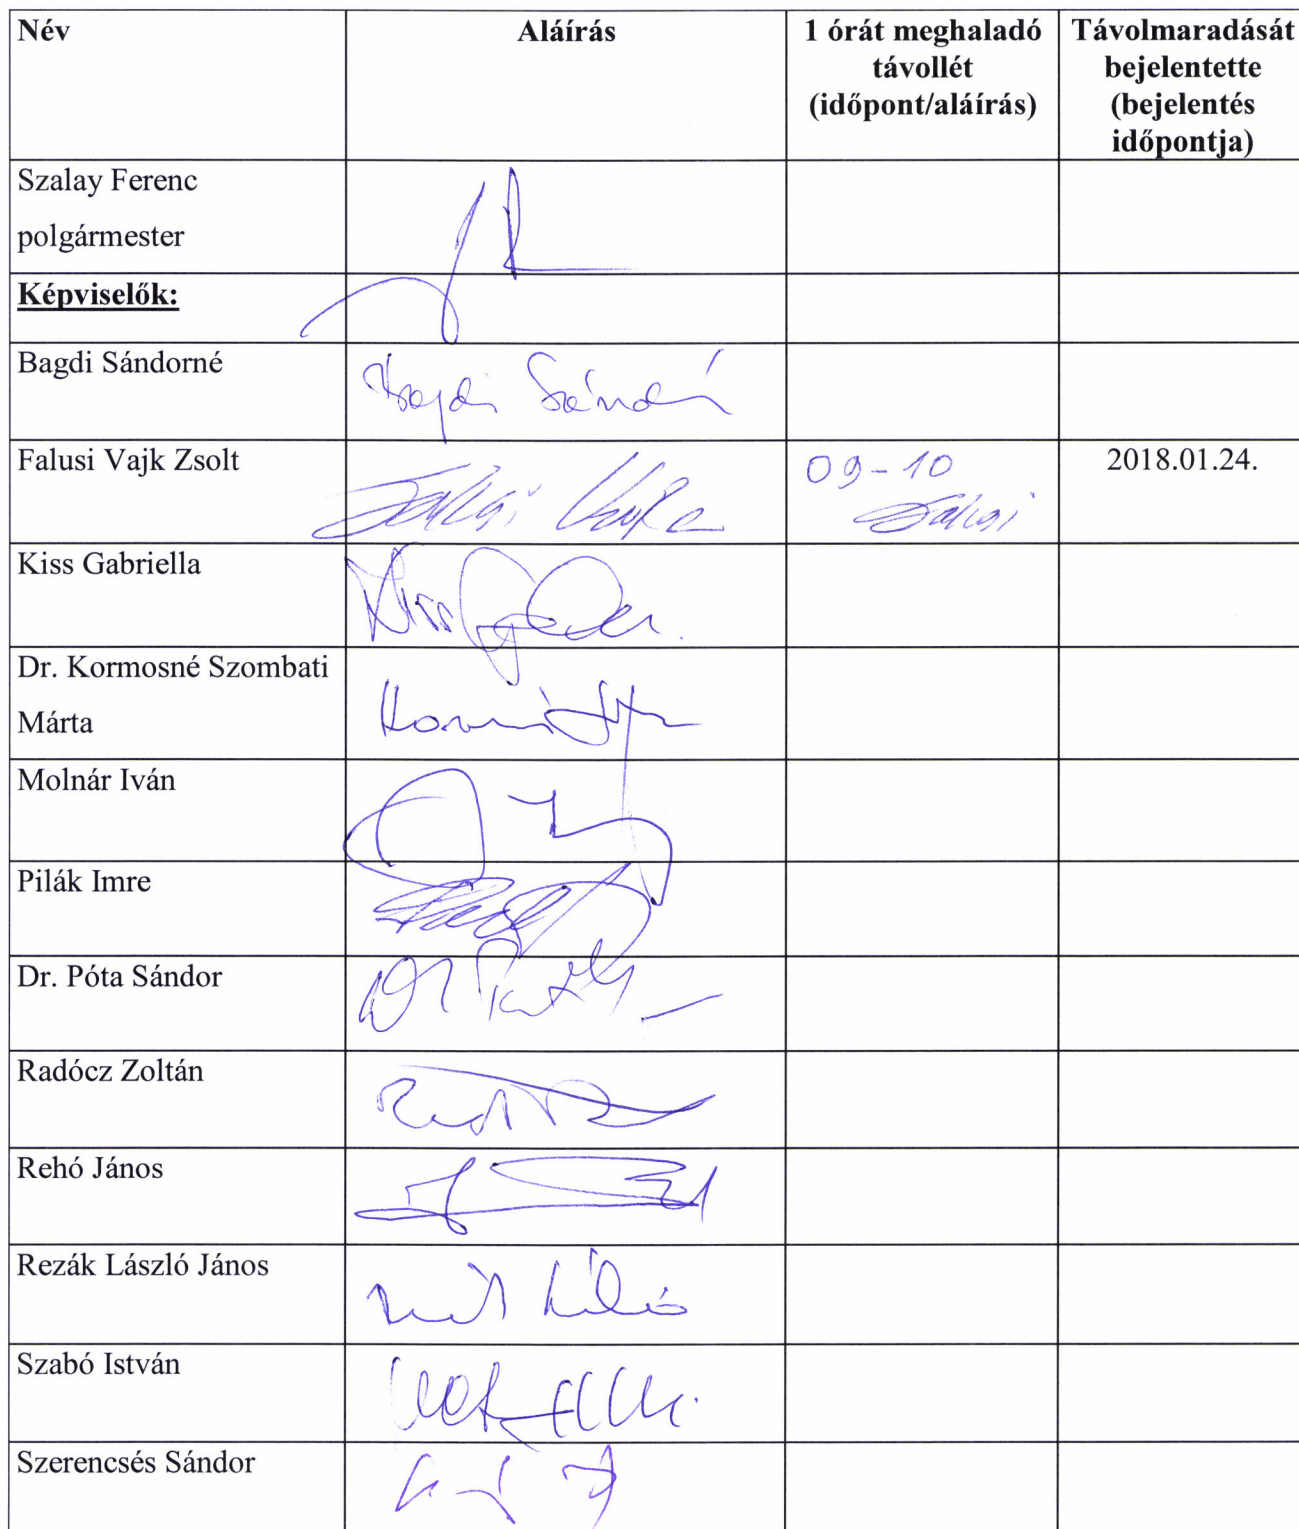 Név
Aláírás
1 órát meghaladó
távollét
(időpont/aláírás)
Távolmaradását
bejelentette
(bejelentés
időpontja)
Szalay Ferenc
polgármester
Képviselők:
Bagdi Sándorné
Bagdi Sándorné
Falusi Vajk Zsolt
Falusi Vajk
09-10
Falusi
2018.01.24.
Kiss Gabriella
Kiss
Dr. Kormosné Szombati
Márta
Molnár Iván
Pilák Imre
Dr. Póta Sándor
Radócz Zoltán
Rehó János
Rezák László János
Szabó István
Szerencsés Sándor